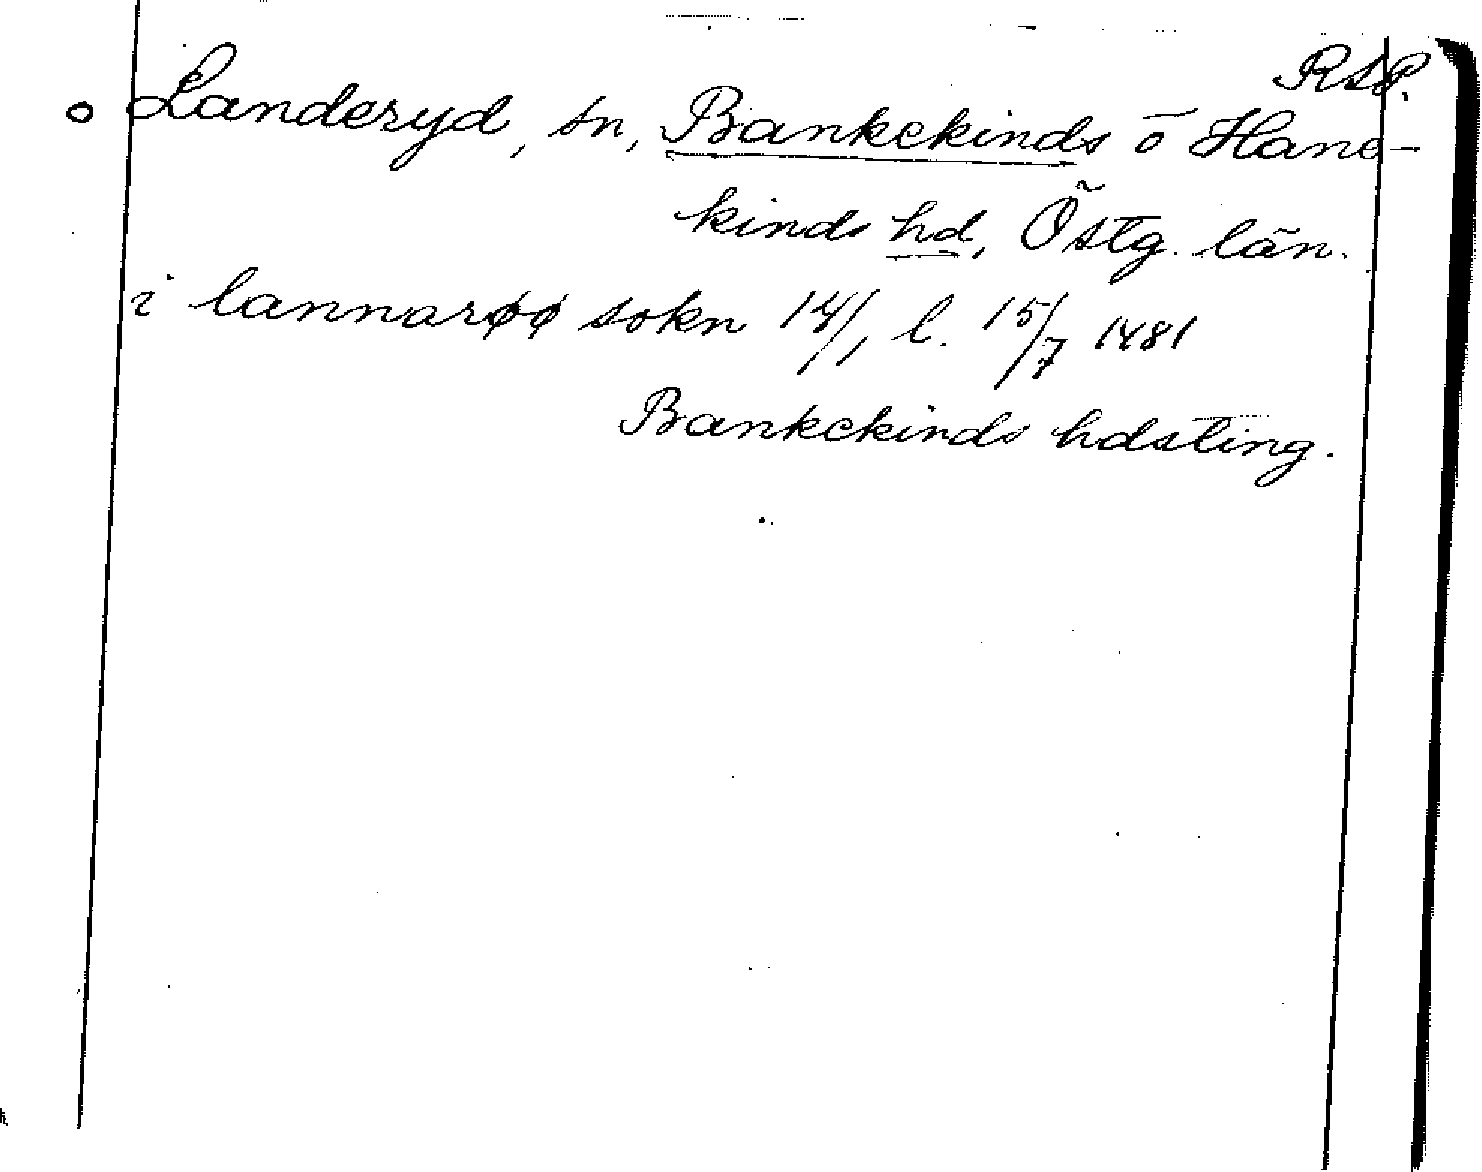 RAP.
o Landeryd, sn, Bankekinds o Hane-
kinds hd, Östg. län.
i lannarøø sokn 14/, l. 15/7 1481
Bankekinds hdsting.